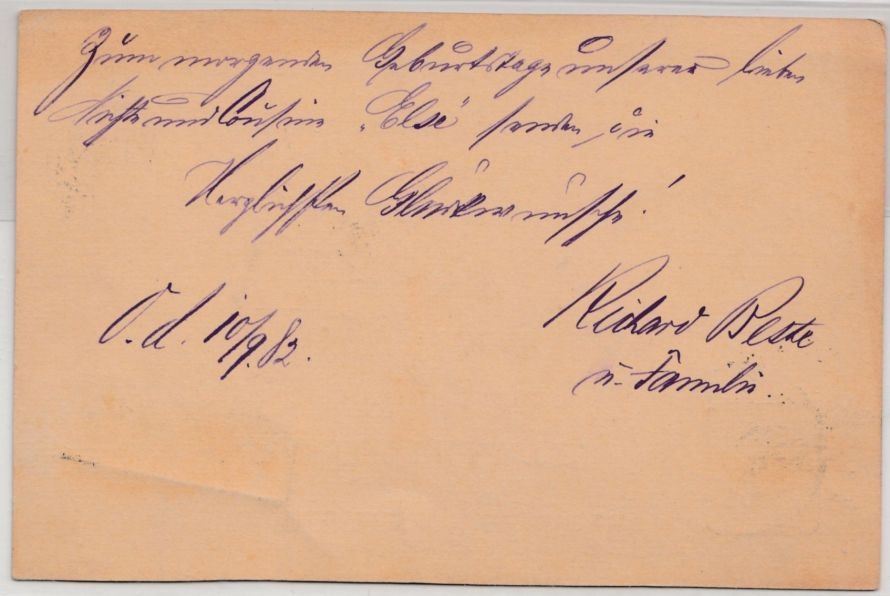 Zum morgenden Geburtstage unserer lieben
Nichte und Cousine „Else“ senden die
Herzlichsten Glückwünsche!
O. d. 10/9.82.
Richard Beste
u. Familie.